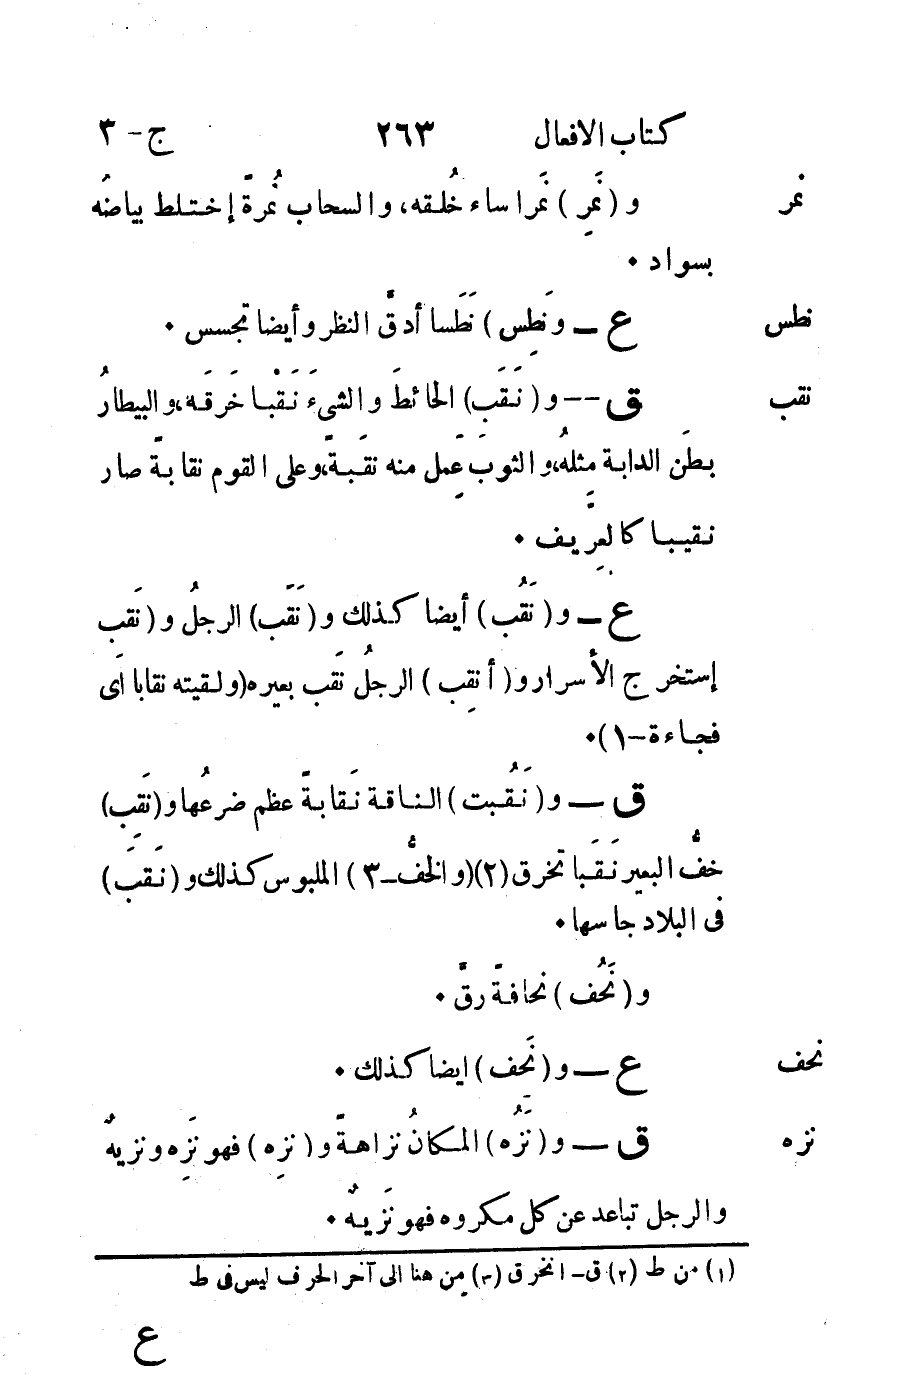 كتاب الافعال ٢٦٣ ج - ٣
نمر و ( نَمِر ) نَمَرا ساء خُلقه، والسحاب نُمرةً إختلط بياضُه
بسواد ٠
نطس ع ــ و نَطِس ) نَطَسا أدقَّ النظر وأيضا تجسس ٠
نقب ق -- و ( نَقَب ) الحائطَ والشيءَ نَقْبا خَرقَه، والبيطارُ
بطَن الدابة مثلهُ، والثوبَ عَمِل منه نقبةً، وعلى القوم نقابةً صار
نقيبا كالعِرِّيف ٠
ع ــ و ( نَقُب ) أيضا كذلك و ( نَقَّب ) الرجلُ و ( نَقب
إستخرج الأسرار و ( أنقِب ) الرجلُ نَقب بعيره ( ولقيته نقابا اَى
فجاءة - ١ ) ٠
ق ــ و ( نَقُبت ) الناقة نَقابةً عظم ضرعُها و ( نَقِب )
خفُّ البعير نَقَبا تخرق (٢) ( والخفُّ ـ ٣ ) الملبوس كذلك و ( نَقَبَ )
فى البلاد جاسها ٠
و ( نَحُف ) نحافةً رقَّ ٠
نحف ع ــ و ( نَحِف ) ايضا كذلك ٠
نزه ق ــ و ( نَزُه ) المكانُ نزاهةً و ( نزِه ) فهو نَزِه ونزيهٌ
والرجل تباعد عن كل مكروه فهو نَزيهٌ ٠
(١) من ط (٢) ق - انخرق (٣) من هنا الى آخر الحرف ليس فى ط
ع